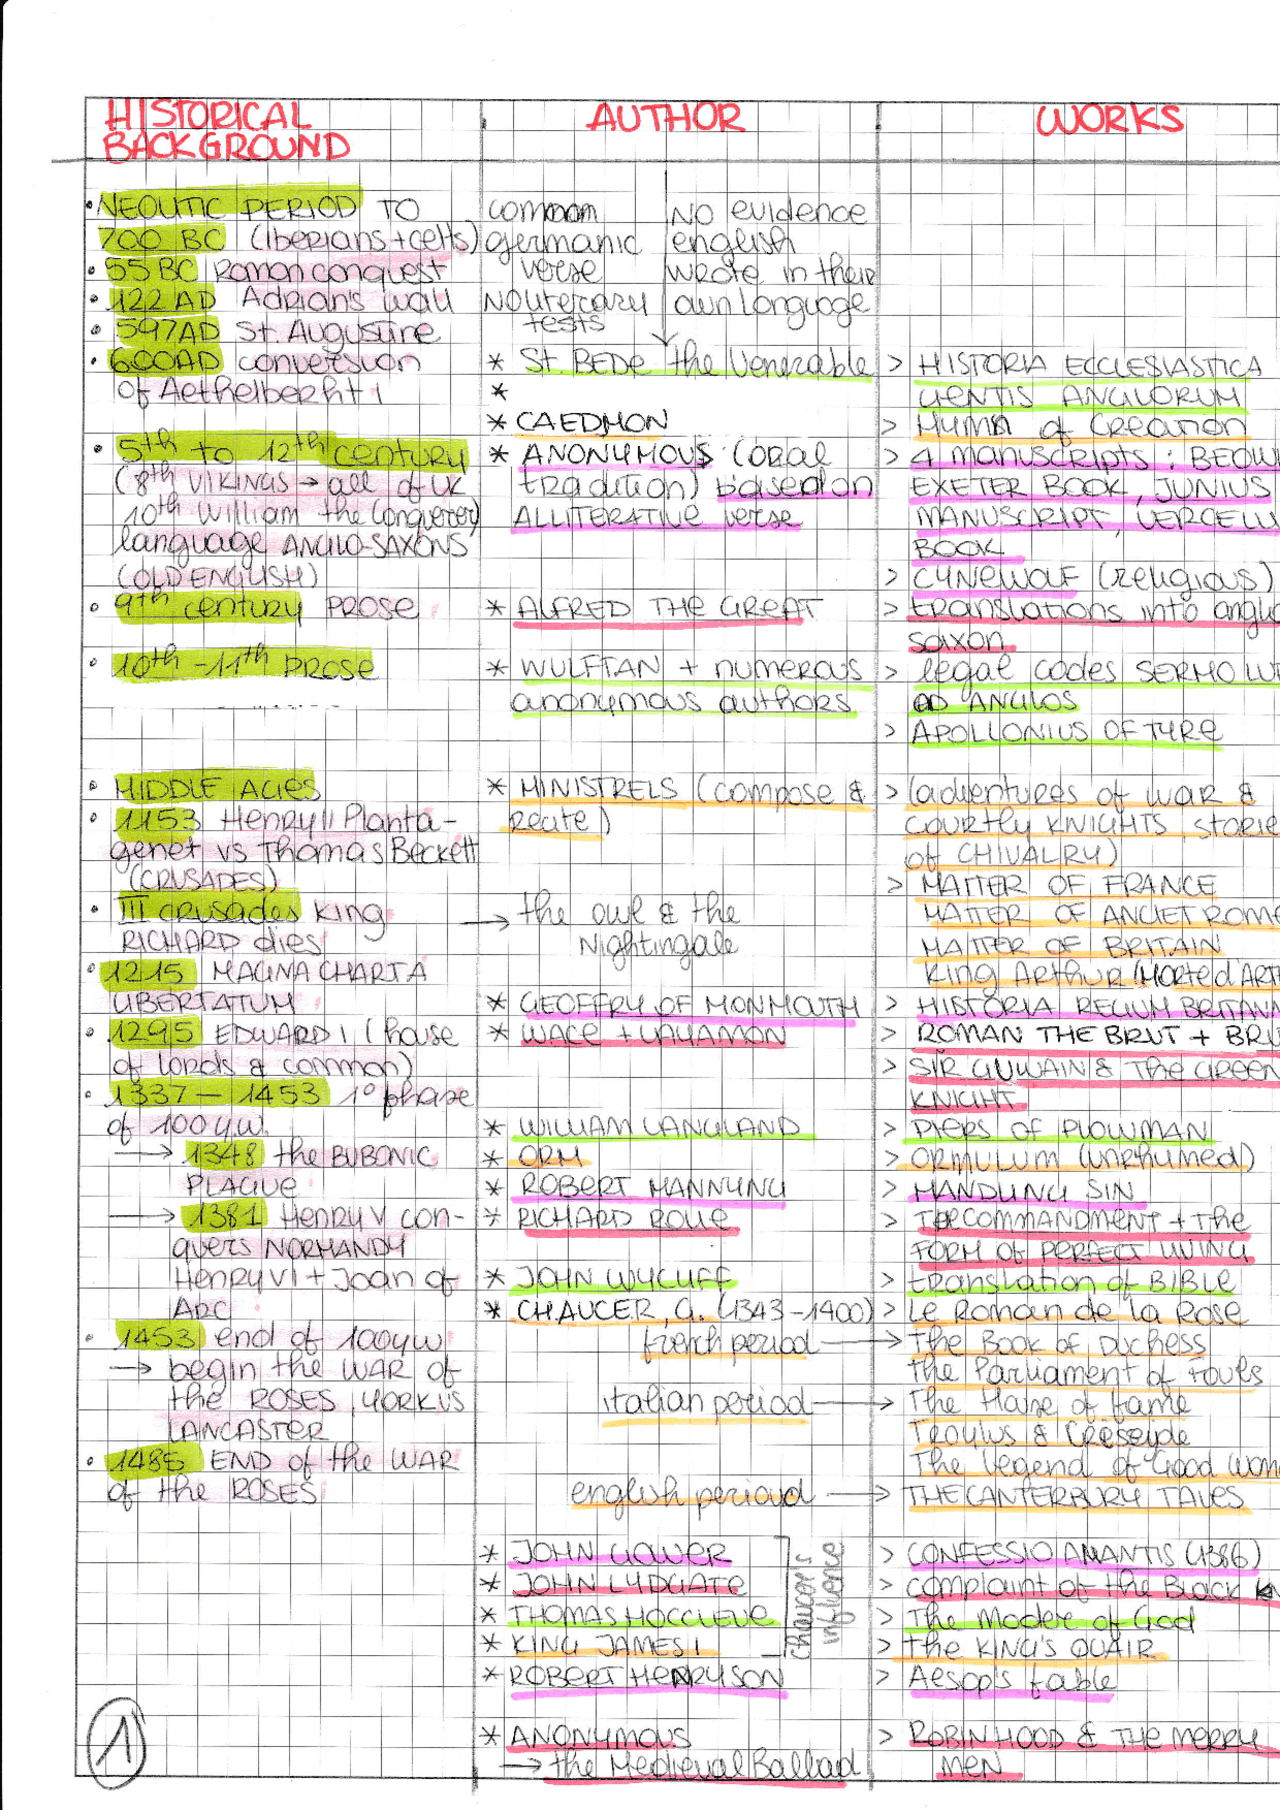 HISTORICAL
BACKGROUND
• NEOLITIC PERIOD TO
700 BC (Iberians + celts)
• 55 BC Roman conquest
• 122 AD Adrian's wall
• 597AD St. Augustine
• 600AD conversion
of Aethelberht I
• 5th to 12th century
(8th VIKINGS → all of UK
10th William the Conqueror)
language ANGLO-SAXONS
(OLD ENGLISH)
• 9th century PROSE
• 10th - 11th PROSE
• MIDDLE AGES
• 1153 Henry II Planta-
genet vs Thomas Beckett
(CRUSADES)
• III crusades King
RICHARD dies
• 1215 MAGNA CHARTA
LIBERTATUM
• 1295 EDWARD I (house
of lords & common)
• 1337 - 1453 1° phase
of 100 y.w.
→ 1348 the BUBONIC
PLAGUE
→ 1381 Henry V con-
quers NORMANDY
Henry VI + Joan of
ARC
• 1453 end of 100yw
→ begin the WAR of
the ROSES, YORK VS
LANCASTER
• 1485 END of the WAR
of the ROSES
AUTHOR
common
germanic
verse
NO literary
tests
NO evidence
english
wrote in their
own language
* St. BEDE the Venerable
*
* CAEDMON
* ANONYMOUS (oral
tradition) based on
ALLITERATIVE verse
* ALFRED THE GREAT
* WULFTAN + numerous
anonymous authors
* MINISTRELS (compose &
recite)
→ the owl & the
Nightingale
* GEOFFRY OF MONMOUTH
* WACE + LAYAMON
* WILLIAM LANGLAND
* ORM
* ROBERT MANNYNG
* RICHARD ROLLE
* JOHN WYCLIFF
* CHAUCER, G. (1343-1400)
french period →
italian period →
english period →
* JOHN GOWER
* JOHN LYDGATE
* THOMAS HOCCLEVE
* KING JAMES I
Chaucer's
influence
* ROBERT HENRYSON
* ANONYMOUS
→ the Medieval Ballad
WORKS
> HISTORIA ECCLESIASTICA
GENTIS ANGLORUM
> Hymn of Creation
> 4 manuscripts: BEOW
EXETER BOOK, JUNIUS
MANUSCRIPT, VERCELLI
BOOK
> CYNEWOLF (religious)
> translations into anglo
saxon
> legal codes SERMO LUP
AD ANGLOS
> APOLLONIUS OF TYRE
> (adventures of war &
courtly KNIGHTS, storie
of CHIVALRY)
> MATTER OF FRANCE
MATTER OF ANCIET ROME
MATTER OF BRITAIN
King Arthur (Morte d'ARTH
> HISTORIA REGUM BRITANN
> ROMAN THE BRUT + BRU
> SIR GUWAIN & The GREEN
KNIGHT
> PIERS OF PLOWMAN
> ORMULUM (unrhymed)
> HANDLING SIN
> THE COMMANDMENT + The
FORM OF PERFECT LIVING
> translation of BIBLE
> Le Roman de la Rose
The Book of Duchess
The Parliament of Fouls
The House of fame
Troylus & Creseyde
The Legend of Good Wom
THE CANTERBURY TALES
> CONFESSIO AMANTIS (1386)
> complaint of the Black Kn
> The Moder of God
> The KING'S QUAIR
> Aesop's fable
> ROBIN HOOD & THE MERRY
MEN
1